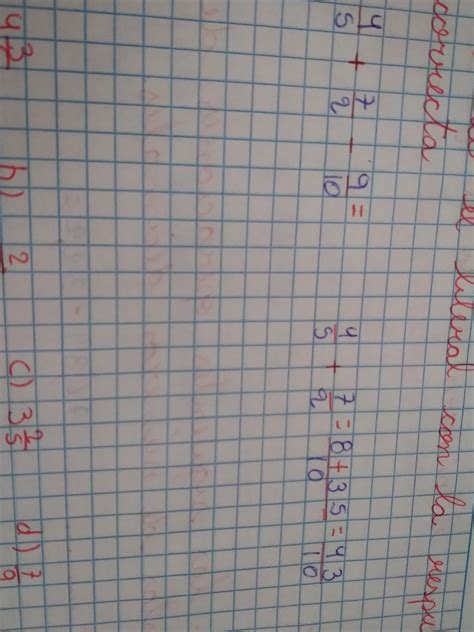 el literal con la
correcta
4/5 + 7/2 - 9/10 =
4/5 + 7/2 = 8+35/10 = 43/10
b) 2 c) 3 2/5 d) 7/9